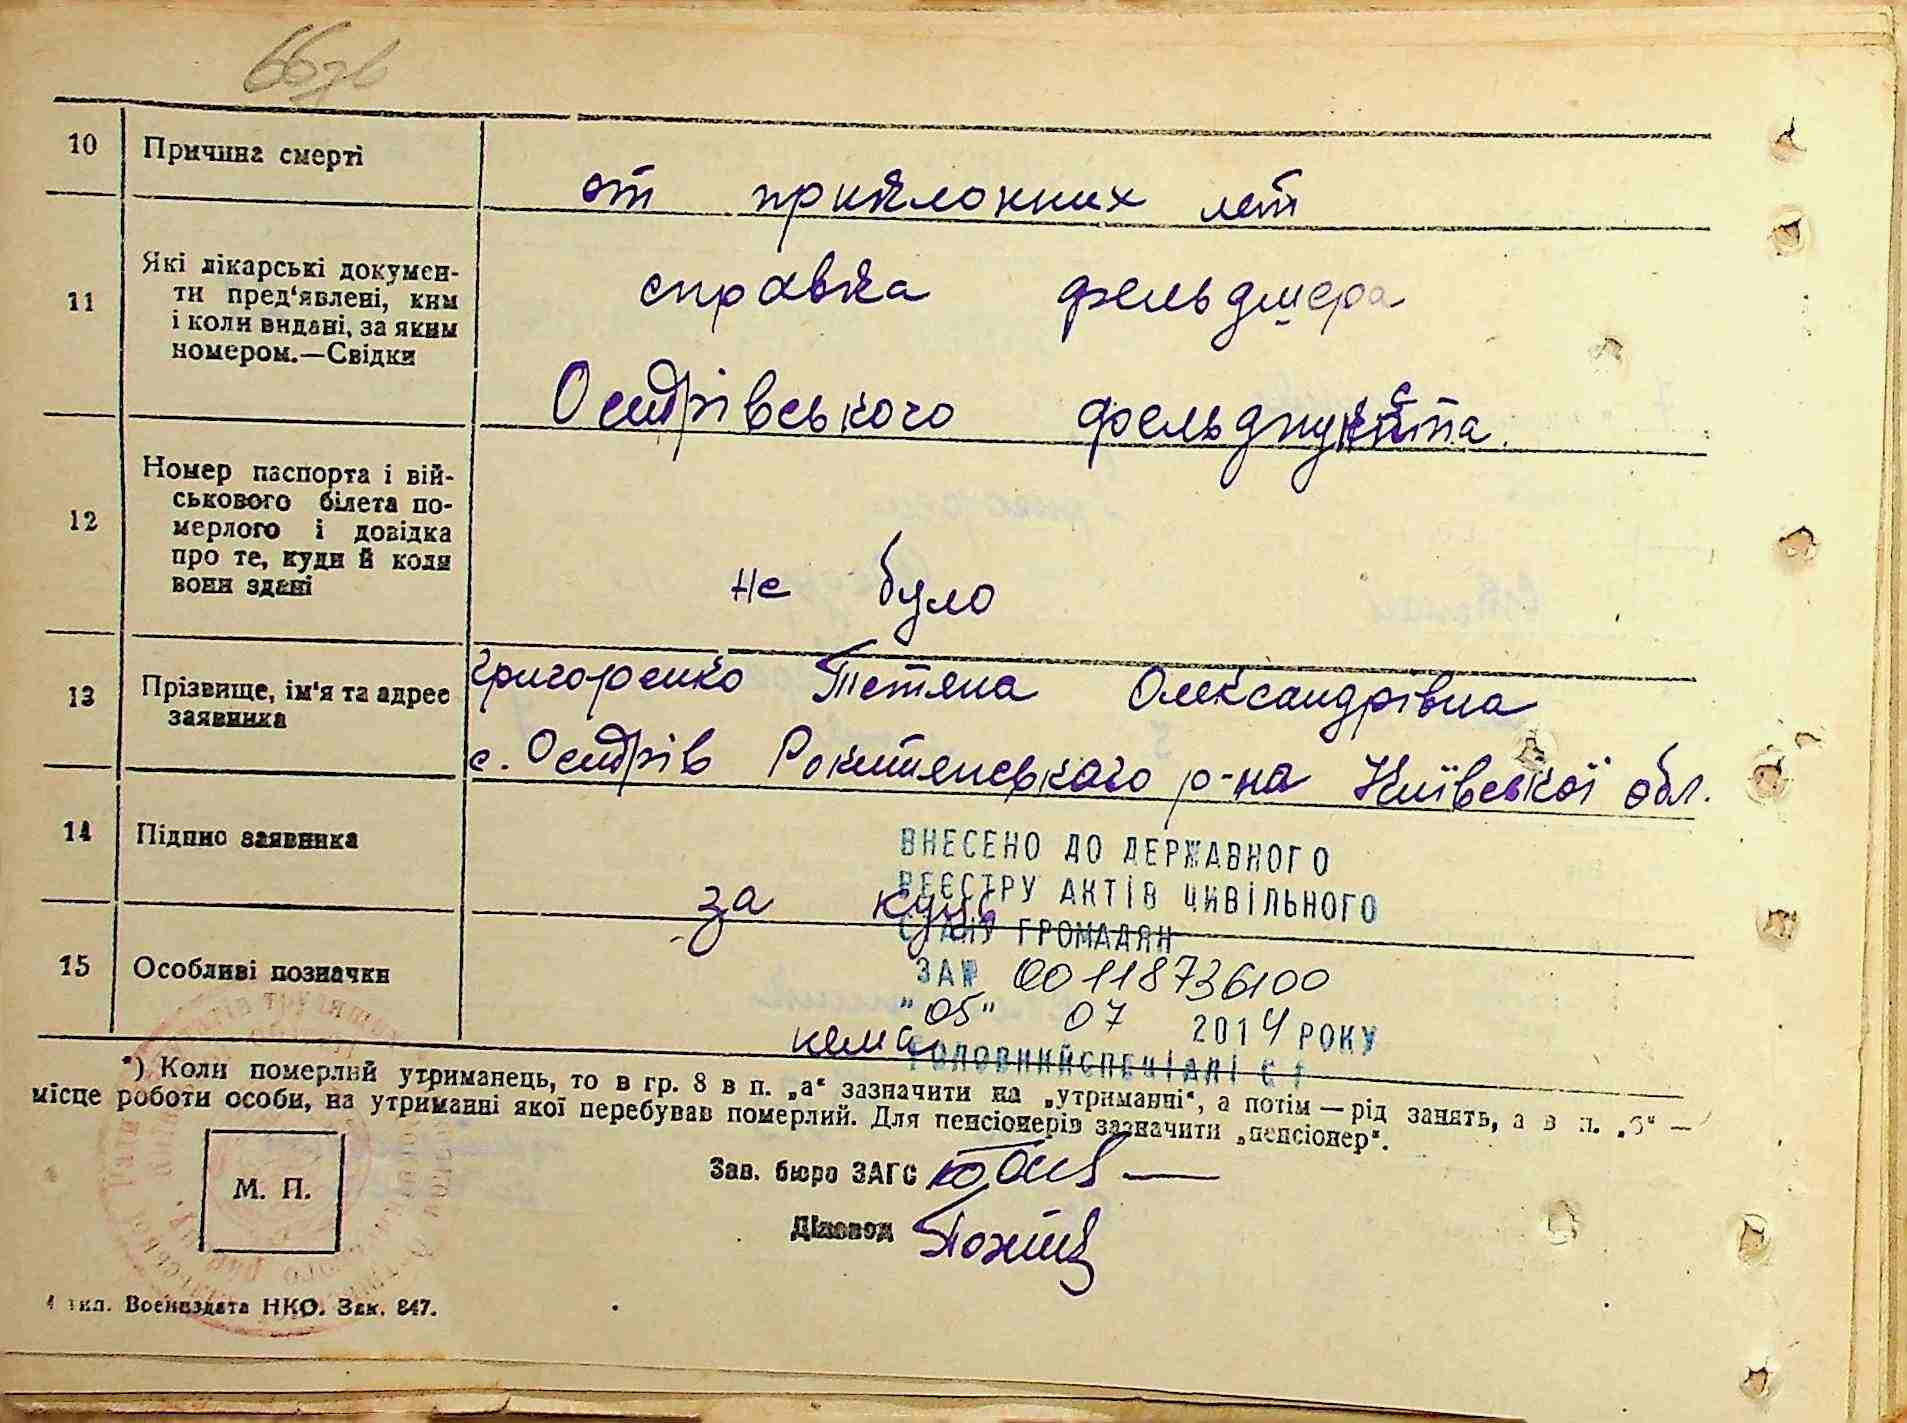 66зв
10 Причина смерті
от прикло­нних лет
11 Які лікарські докумен-
ти пред'явлені, ким
і коли видані, за яким
номером.—Свідки
справка фельдшера
Острівського фельдпункта.
12 Номер паспорта і вій-
ськового білета по-
мерлого і довідка
про те, куди й коли
вони здані
не було
13 Прізвище, ім'я та адрес
заявника
Григоренко Тетяна Олександрівна
с. Острів Рокитянського р-на Київської обл.
14 Підпис заявника
за
15 Особливі позначки
нема
ВНЕСЕНО ДО ДЕРЖАВНОГО
РЕЄСТРУ АКТІВ ЦИВІЛЬНОГО
СТАНУ ГРОМАДЯН
ЗА № 00118736100
"05" 07 2014 РОКУ
ГОЛОВНИЙ СПЕЦІАЛІСТ
*) Коли померлий утриманець, то в гр. 8 в п. „а“ зазначити на „утриманні“, а потім — рід занять, а в п. „б“ —
місце роботи особи, на утриманні якої перебував померлий. Для пенсіонерів зазначити „пенсіонер“.
М. П.
Зав. бюро ЗАГС
Діловод
тип. Воениздата НКО. Зак. 847.